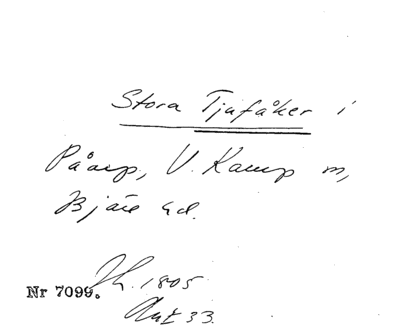 Stora Tjufåker i
Påarp, V. Karup sn,
Bjäre hd.
Sk. 1805
Nr 7099.
Akt 33.